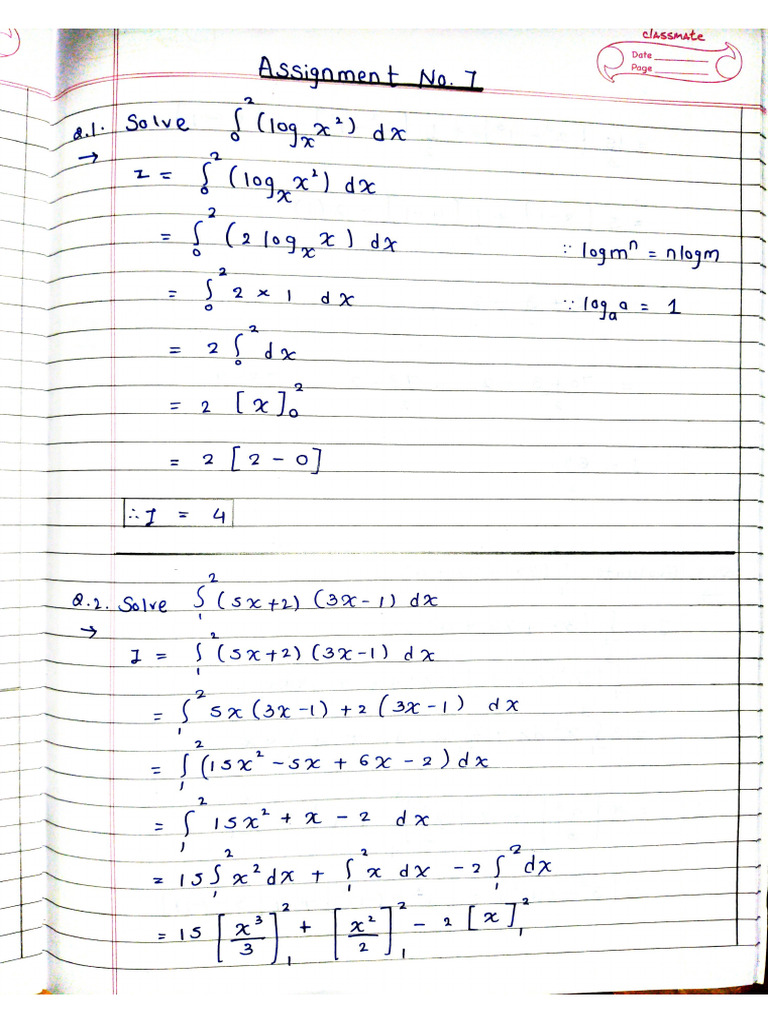 classmate
Date
Page
Assignment No. 7
Q.1. Solve ∫₀² (logₓ x²) dx
→
I = ∫₀² (logₓ x²) dx
= ∫₀² (2 logₓ x) dx ∵ log mⁿ = n log m
= ∫₀² 2 × 1 dx ∵ logₐ a = 1
= 2 ∫₀² dx
= 2 [x]₀²
= 2 [2 - 0]
∴ I = 4
Q.2. Solve ∫₁² (5x+2) (3x-1) dx
→
I = ∫₁² (5x+2) (3x-1) dx
= ∫₁² 5x (3x-1) + 2 (3x-1) dx
= ∫₁² (15x² - 5x + 6x - 2) dx
= ∫₁² 15x² + x - 2 dx
= 15 ∫₁² x² dx + ∫₁² x dx - 2 ∫₁² dx
= 15 [x³/3]₁² + [x²/2]₁² - 2 [x]₁²